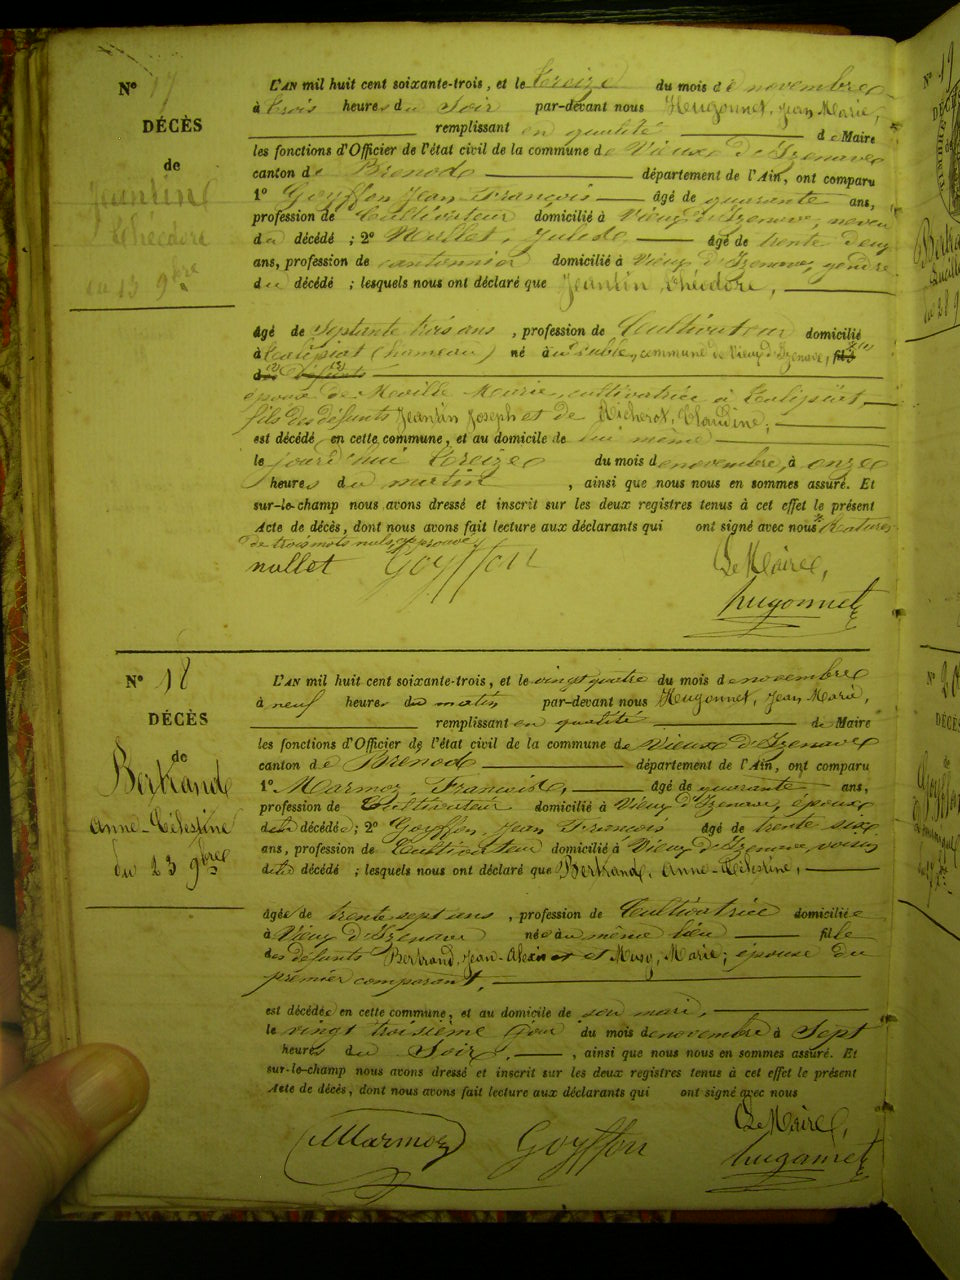 N° 17
DÉCÈS
de
Jeantin
Théodore
du 13 9bre
L'AN mil huit cent soixante-trois, et le treize du mois de novembre
à trois heures du soir par-devant nous Hugonnet, Jean Marie,
remplissant en qualité de Maire
les fonctions d'Officier de l'état civil de la commune de Vieux d'Izenave
canton de Brenod département de l'Ain, ont comparu
1° Goyffon Jean François âgé de quarante ans,
profession de Cultivateur domicilié à Vieux d'Izenave, neveu
du décédé ; 2° Nallet, Jules âgé de trente deux
ans, profession de cantonnier domicilié à Vieux d'Izenave, gendre
du décédé ; lesquels nous ont déclaré que Jeantin, Théodore,
âgé de septante trois ans , profession de Cultivateur domicilié
à (hameau) né à commune de Vieux d'Izenave, fils
des Défunts
épouse de Marie, cultivatrice à
fils des défunts Jeantin Joseph et de Richerot, Claudine,
est décédé en cette commune, et au domicile de lui même
le jourd'hui treize du mois de novembre, à onze
heures du matin , ainsi que nous nous en sommes assuré. Et
sur-le-champ nous avons dressé et inscrit sur les deux registres tenus à cet effet le présent
Acte de décès, dont nous avons fait lecture aux déclarants qui ont signé avec nous Ratures
de trois mots nuls approuvé
nallet Goyffon Le Maire,
hugonnet
N° 18
DÉCÈS
de
Bertrand
Anne-Célestine
du 23 9bre
L'AN mil huit cent soixante-trois, et le vingt quatre du mois de novembre
à neuf heures du matin par-devant nous Hugonnet, Jean Marie,
remplissant en qualité de Maire
les fonctions d'Officier de l'état civil de la commune de Vieux d'Izenave
canton de Brenod département de l'Ain, ont comparu
1° Marmoz, François, âgé de quarante ans,
profession de Cultivateur domicilié à Vieux d'Izenave, époux
de la décédée ; 2° Goyffon, Jean François âgé de trente six
ans, profession de Cultivateur domicilié à Vieux d'Izenave, voisin
de la décédé ; lesquels nous ont déclaré que Bertrand, Anne-Célestine,
âgée de trente sept ans , profession de Cultivatrice domiciliée
à Vieux d'Izenave née au même lieu fille
des défunts Bertrand, Jean-Alexis et et Musy, Marie; épouse du
premier comparant,
est décédée en cette commune, et au domicile de son mari,
le vingt troisième jour du mois de novembre à Sept
heures du Soir, , ainsi que nous nous en sommes assuré. Et
sur-le-champ nous avons dressé et inscrit sur les deux registres tenus à cet effet le présent
Acte de décès, dont nous avons fait lecture aux déclarants qui ont signé avec nous
Le Maire,
Marmoz Goyffon hugonnet